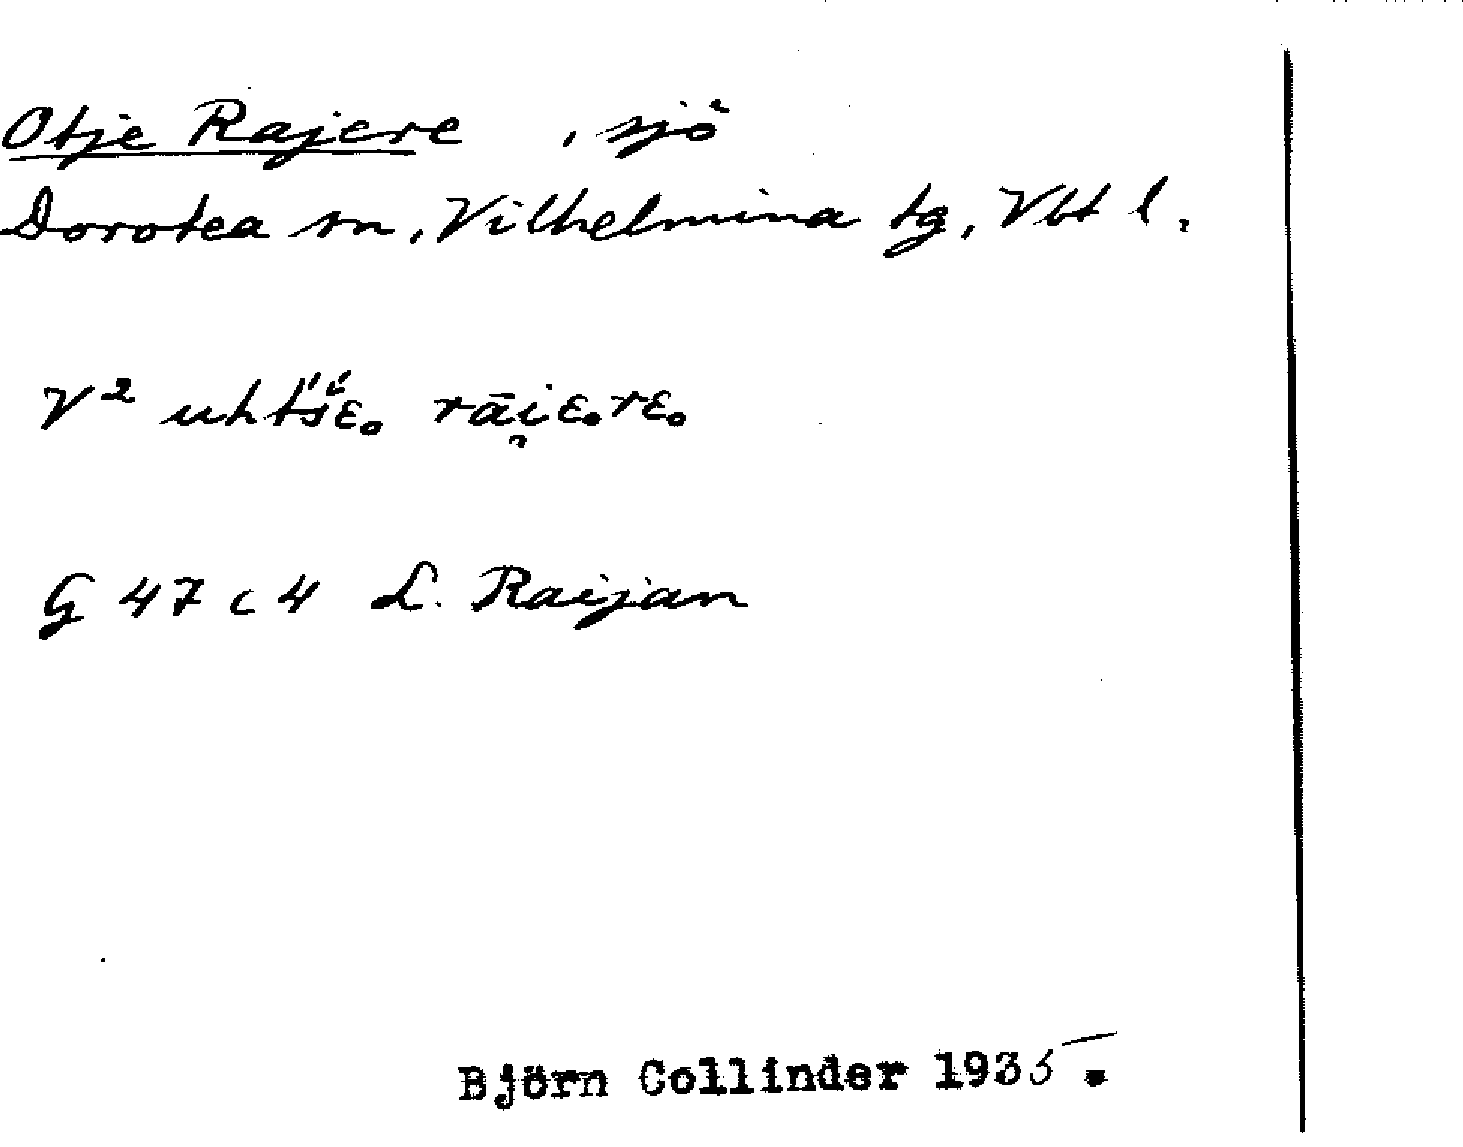 Otje Rajere , sjö
Dorotea sn, Vilhelmina tg, Vbt l.
V² uhtš́ε̥ rāi̯ε̥rε̥
G 47 c 4 L. Raijan
Björn Collinder 1935.